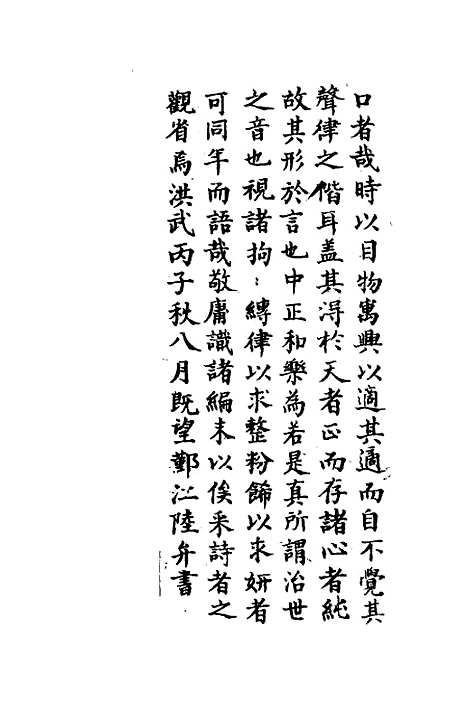 口者哉時以目物寓興以適其適而自不覺其
聲律之偕耳盖其淂於天者正而存諸心者純
故其形於言也中正和樂為若是真所謂治世
之音也視諸拘〻縛律以求整粉飾以求妍者
可同年而語哉敬庸識諸編末以俟采詩者之
觀省焉洪武丙子秋八月既望鄞江陸弁書